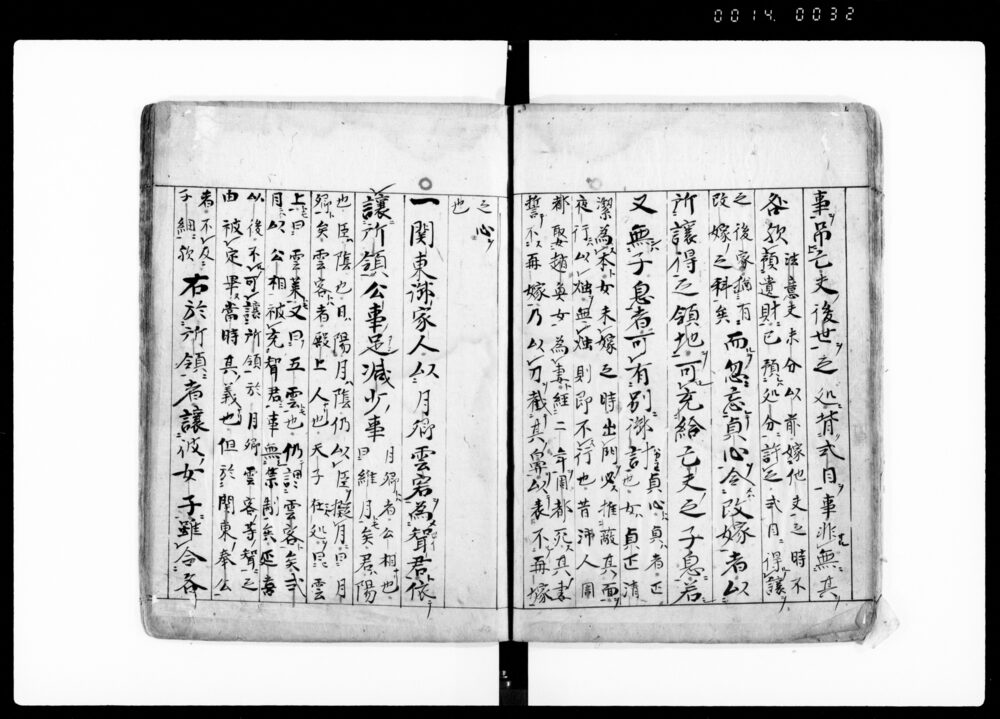 0014 0032
事吊亡夫後世之処背式目事非無其
咎歟 注意夫未分以前嫁他夫之時不
預遺財已預処分許之式目得讓
之後家猶有
改嫁之科矣 而忽忘貞心令改嫁者以
所讓得之領地可充給亡夫之子息若
又無子息者可有別御計也 貞心貞者正也女貞正清
潔為本女未嫁之時出門必推蔽其面
夜行以燭無燭則即不行也昔沛人
都娶趙 女為妻経二年 都死其妻
誓不再嫁乃以刀截其鼻以表不再嫁
之心
也
一関東御家人以月卿雲客為聟君依
讓所領公事足減少事 月卿者公相也
曰維月矣君陽
也臣陰也日陽月陰仍以臣 月曰月
卿矣雲客者殿上人也天子在処曰雲
上曰雲 又曰五雲也仍 雲客矣式
月以公相被充聟君事無禁制矣延喜
以後不可讓所領於月卿雲客等聟之
由被定畢當時其義也但於関東奉公
者不及
子細歟 右於所領者讓彼女子雖令各